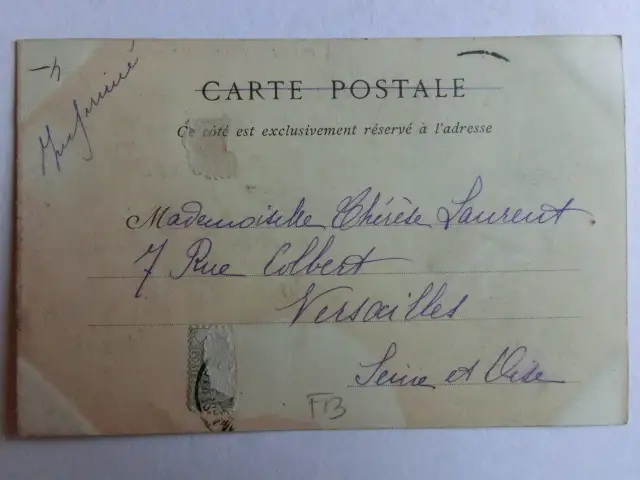 Imprimé
CARTE POSTALE
Ce côté est exclusivement réservé à l'adresse
Mademoiselle Thérèse Laurent
7 Rue Colbert
Versailles
Seine et Oise